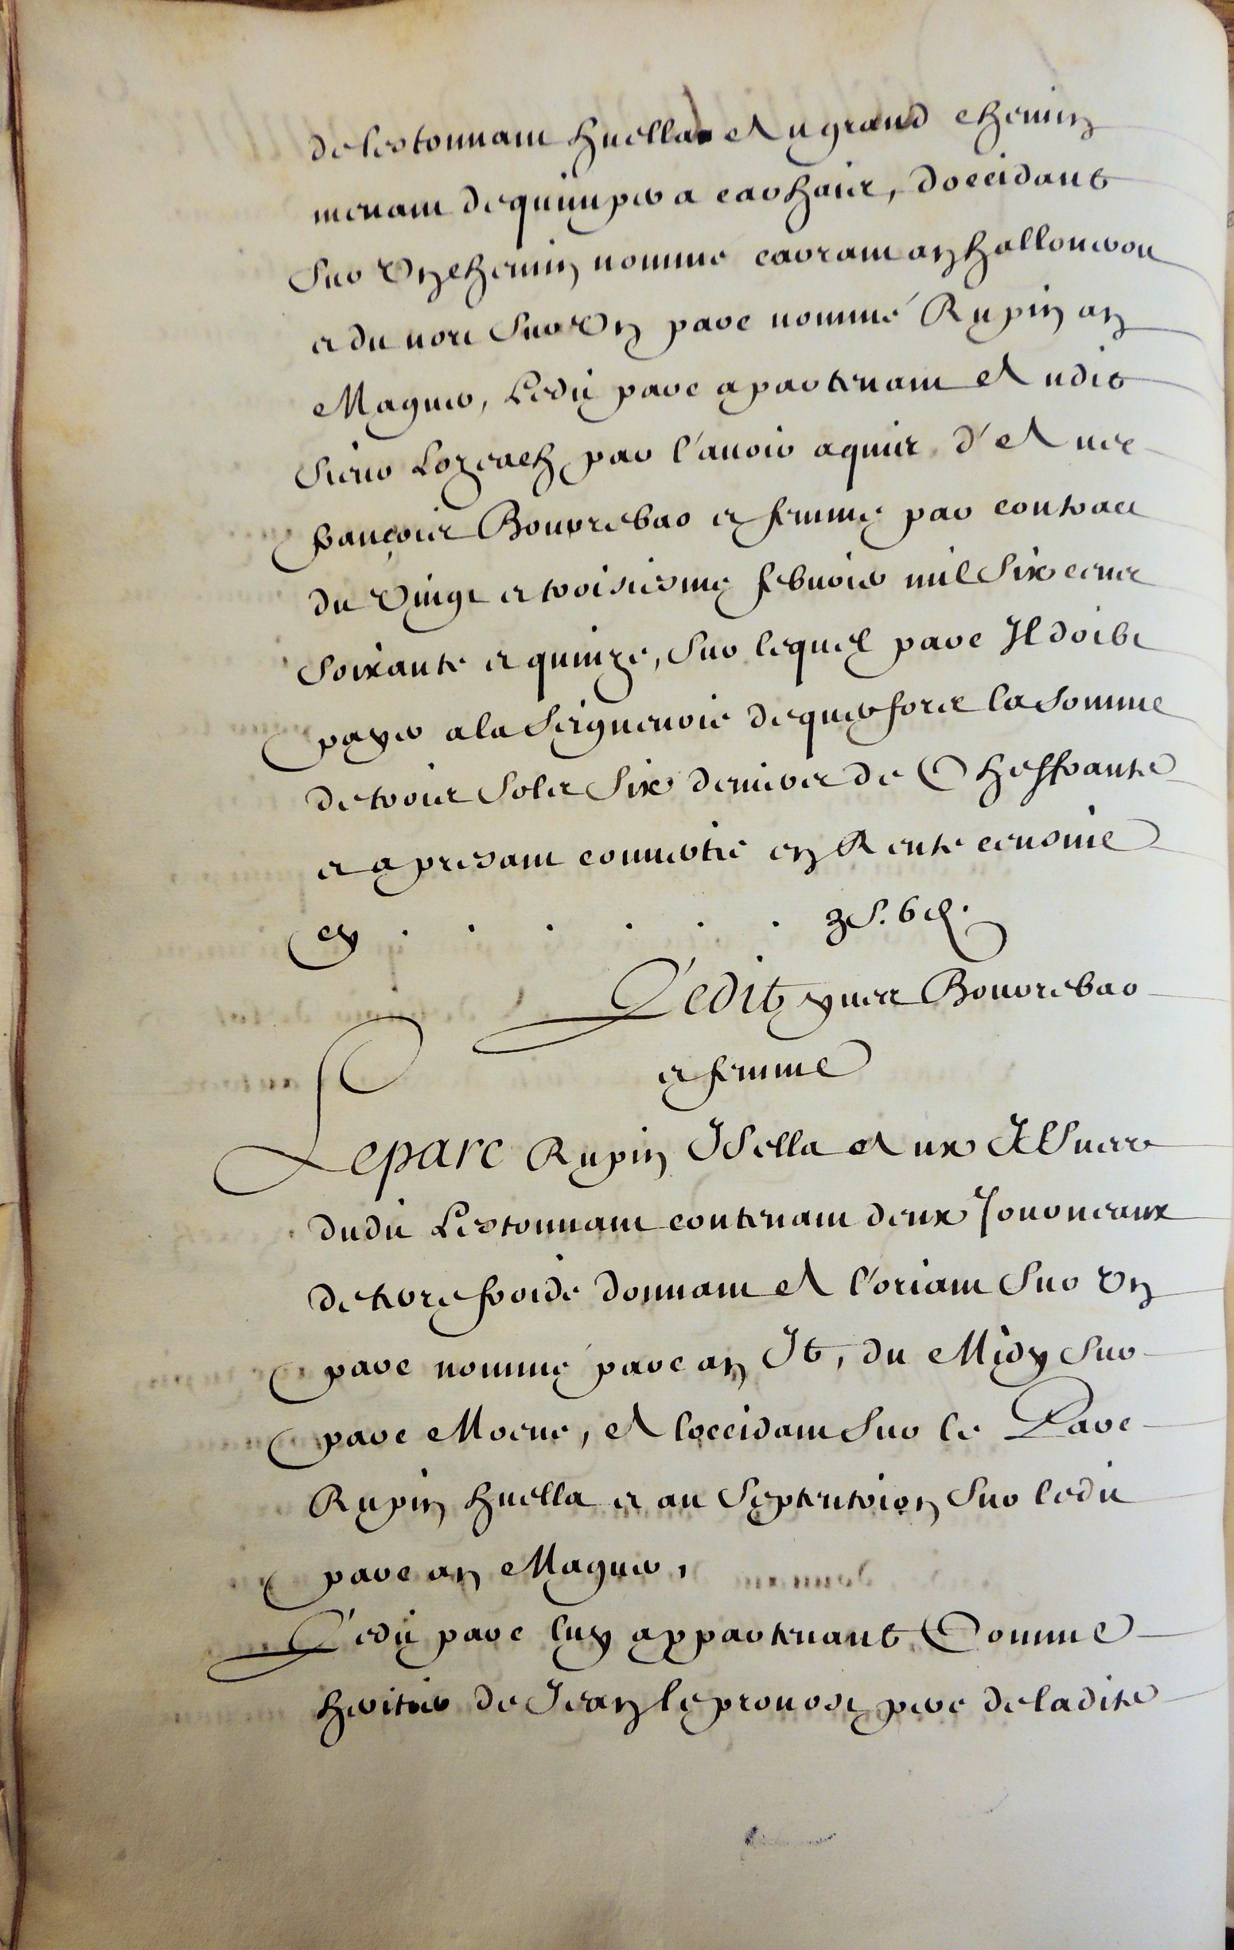 de Lestonnant huella Au grand chemin
menant de quimper a carhaix, doccidant
Sur Un chemin nommé carvant an halloueron
et du nort Sur Un parc nommé Rupin an
Maguer, Ledit parc apartenant Audit
Sieur Lozeach par l'auoir aquis d'Yues
françois Bourrebao et femme par contract
du Vingt et troisiesme febuoir mil Six cents
Soixante et quinze, Sur lequel parc Il doibt
payer a la Seigneurie de querforts la Somme
de trois Sols Six deniers de Cheffrante
et a present conuertie en Rente censiue
cy . . . . . . 3 s. 6 d.
Ledit yues Bourrebao
et femme
Le parc Rupin Isella Aux Issues
dudit Lestonnant contenant deux Journeaux
de terre froide donnant A l'oriant Sur Un
parc nommé parc an It, du Midy Sur
parc Moene, A loccidant Sur le Parc
Rupin huella et au Septentrion Sur ledit
parc an Maguer,
Ledit parc luy appartenant Comme
heritier de Jean le prouost pere de ladite